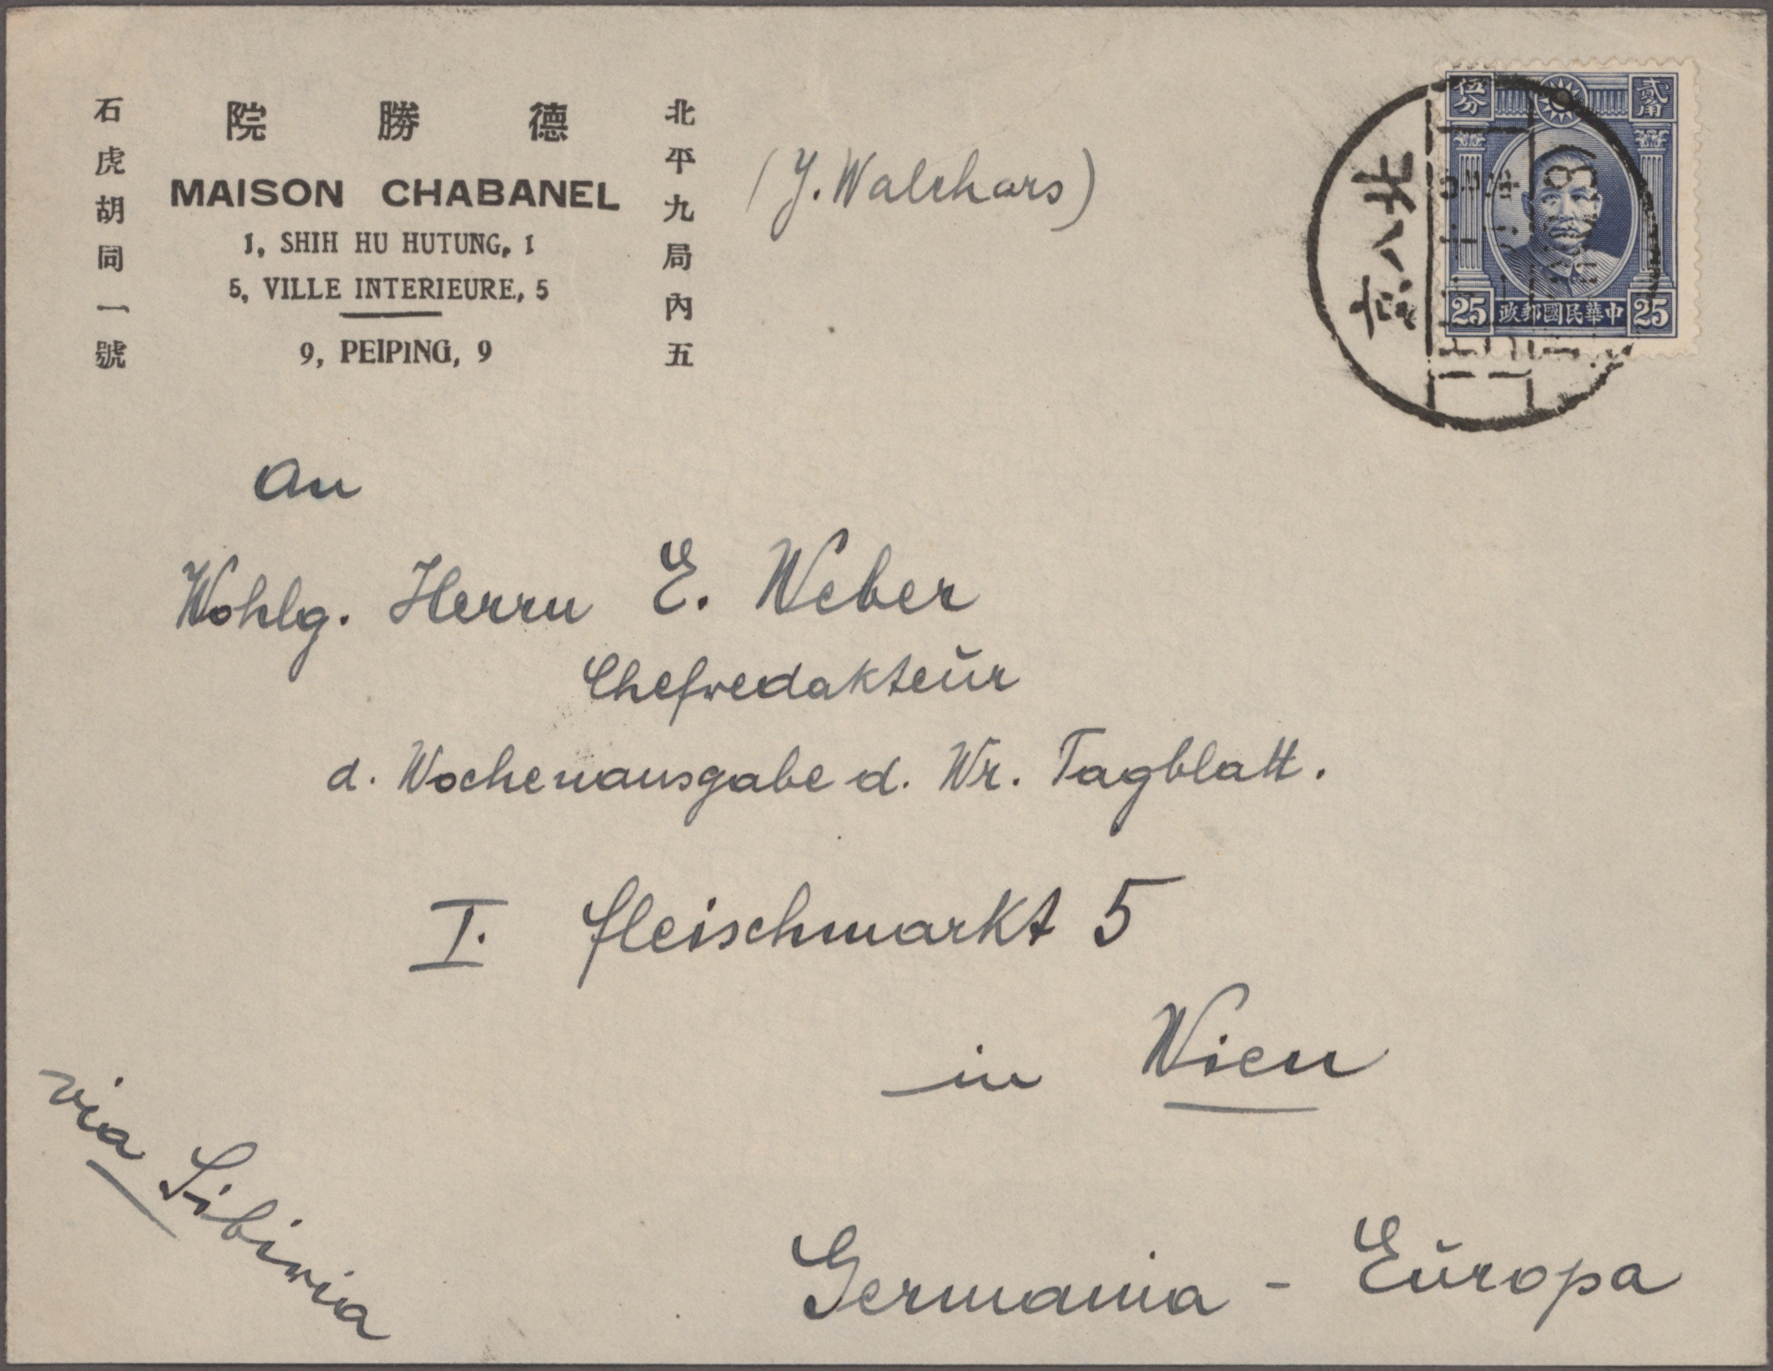 德勝院
MAISON CHABANEL
1, SHIH HU HUTUNG, 1
5, VILLE INTERIEURE, 5
9, PEIPING, 9
北平九局內五
石虎胡同一號
(Y. Walchars)
貳角
伍分
25 中華民國郵政 25
北京
An
Wohlg. Herrn E. Weber
Chefredakteur
d. Wochenausgabe d. Wr. Tagblatt.
I. Fleischmarkt 5
in Wien
Germania - Europa
via Sibiria